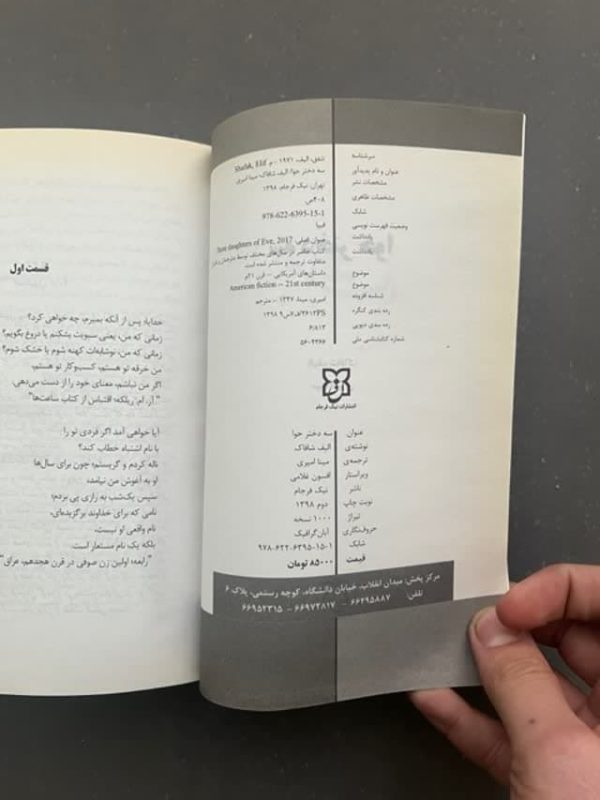 سرشناسه شفق، الیف، ۱۹۷۱ - م. Shafak, Elif
عنوان و نام پدیدآور سه دختر حوا/ الیف شافاک؛ مینا امیری
مشخصات نشر تهران: نیک فرجام، ۱۳۹۸.
مشخصات ظاهری ۴۰۸ص.
شابک 978-622-6395-15-1
وضعیت فهرست نویسی فیپا
یادداشت عنوان اصلی: Three daughters of Eve, 2017
یادداشت کتاب حاضر در سال‌های مختلف توسط مترجمان و ناشران
متفاوت ترجمه و منتشر شده است
موضوع داستان‌های آمریکایی -- قرن ۲۱م
موضوع American fiction -- 21st century
شناسه افزوده امیری، مینا، ۱۳۴۷ - مترجم
رده بندی کنگره
رده بندی دیویی ۸۱۳/۶
شماره کتابشناسی ملی
انتشارات نیک فرجام
عنوان سه دختر حوا
نوشته‌ی الیف شافاک
ترجمه‌ی مینا امیری
ویراستار افسون غلامی
ناشر نیک فرجام
نوبت چاپ دوم ۱۳۹۸
تیراژ ۱۰۰۰ نسخه
حروف‌نگاری آبان‌گرافیک
شابک ۹۷۸-۶۲۲-۶۳۹۵-۱۵-۱
قیمت ۸۵۰۰۰ تومان
مرکز پخش: میدان انقلاب، خیابان دانشگاه، کوچه رستمی، پلاک ۶
تلفن: ۶۶۴۹۵۸۸۷ - ۶۶۹۷۲۸۱۷ - ۶۶۹۵۲۳۱۵
قسمت اول
خدایا، پس از آنکه بمیرم، چه خواهی کرد؟
زمانی که من، یعنی سبویت بشکنم یا دروغ بگویم؟
زمانی که من، نوشابه‌ات کهنه شوم یا خشک شوم؟
من خرقه تو هستم، کسب‌وکار تو هستم،
اگر من نباشم، معنای خود را از دست می‌دهی.
"آر. ام. ریلکه، اقتباس از کتاب ساعت‌ها"
آیا خواهی آمد اگر فردی تو را
با نام اشتباه خطاب کند؟
ناله کردم و گریستم، چون برای سال‌ها
او به آغوش من نیامد،
سپس یک‌شب به رازی پی بردم؛
نامی که برای خداوند برگزیده‌ای،
نام واقعی او نیست،
بلکه یک نام مستعار است.
"رابعه، اولین زن صوفی در قرن هجدهم، عراق"